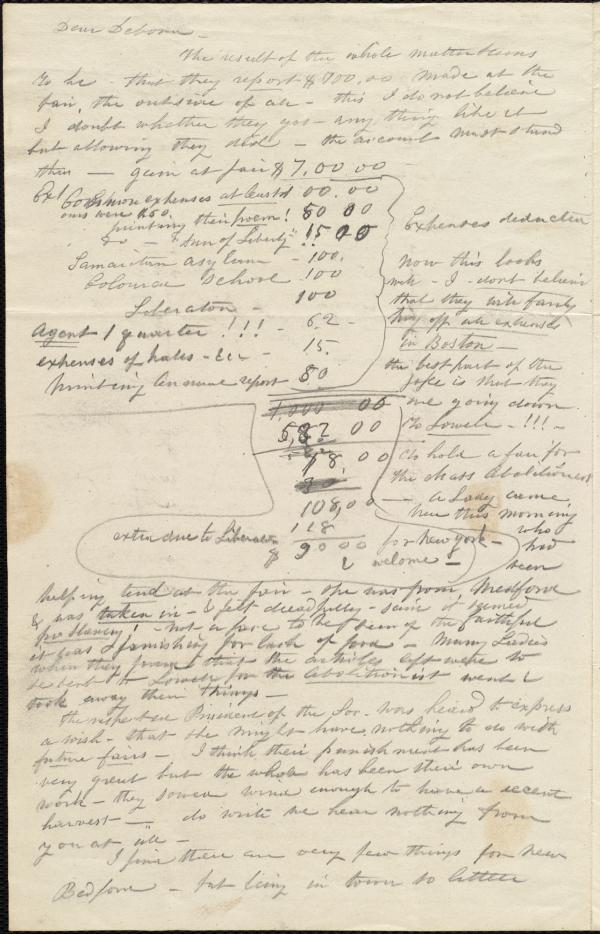 Dear Debora -
The result of the whole matter seems
to be - that they report $700,00 made at the
fair, the outside of all - this I do not believe
I doubt whether they got any thing like it
but allowing they did - the account must stand
thus - gain at fair $7,00 00
Ex! Common expenses at least 00.00
ours were 250.
printing their poem! 50 00
Do - "Ann of Liberty"!! 15 00
Samaritan asylum - 100.
Coloured School - 100
Liberator - 100
Agent 1 quarter !!! - 62 -
expenses of hales - &c - 15.
printing annual report 80
Expenses deducted
now this looks
well - I dont believe
that they will fairly
pay off all expenses
in Boston -
the best part of the
joke is that they
are going down
to Lowell - !!! -
to hold a fair for
the Mass Abolitionist
- a Lady came
here this morning
who
for New york - had
& welcome - been
5,82 00
18,00
108,00
118
extra due to Liberator
$ 90 00
helping tend at the fair - she was from Medford
& was taken in - & felt dreadfully - said it seemed
pro slavery! not a face to be seen of the faithful
it was famishing for lack of food - Many Ladies
when they found that the articles left were to
be sent to Lowell for the Abolitionist went &
took away their things -
The respected President of the Soc. was heard to express
a wish - that she might have nothing to do with
future fairs - I think their punishment has been
very great but the whole has been their own
work - they sowed wind enough to have a decent
harvest - do write we hear nothing from
you at all -
I find there are very few things for New
Bedford - but being in town so little